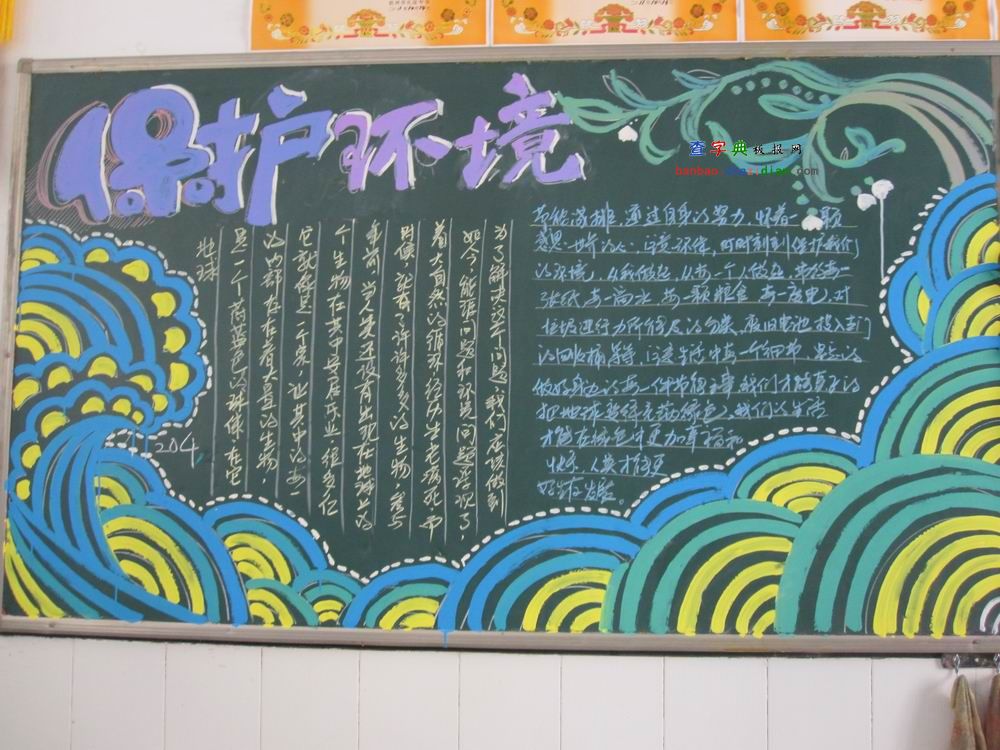 保护环境
查字典板报网
banbao.chazidian.com
地球
是一个蔚蓝色的球体,在它
的内部存在着大量的生物,
它就像是一个家,让其中的每一
个生物在其中安居乐业,很多亿
年前,当人类还没有出现在地球上的
时候,就有了许许多多的生物,参与
着大自然的循环,经历生老病死,而
如今,能源问题和环境问题浮现了,
为了解决这个问题,我们应该做到
1204
节能减排,通过自身的努力,怀着一颗
感恩世界的心,注意环保,时时刻刻保护我们
的环境,从我做起,从每一个人做起,节约每一
张纸 每一滴水 每一颗粮食 每一度电,对
垃圾进行力所能及的分类,废旧电池投入专门
的回收桶等等,注意生活中每一个细节,的
做好身边的每一件事,我们才能真正的
把地球变得充满绿色,我们的生活
才能在绿色中更加幸福和
快乐,人类才能更
好的发展。